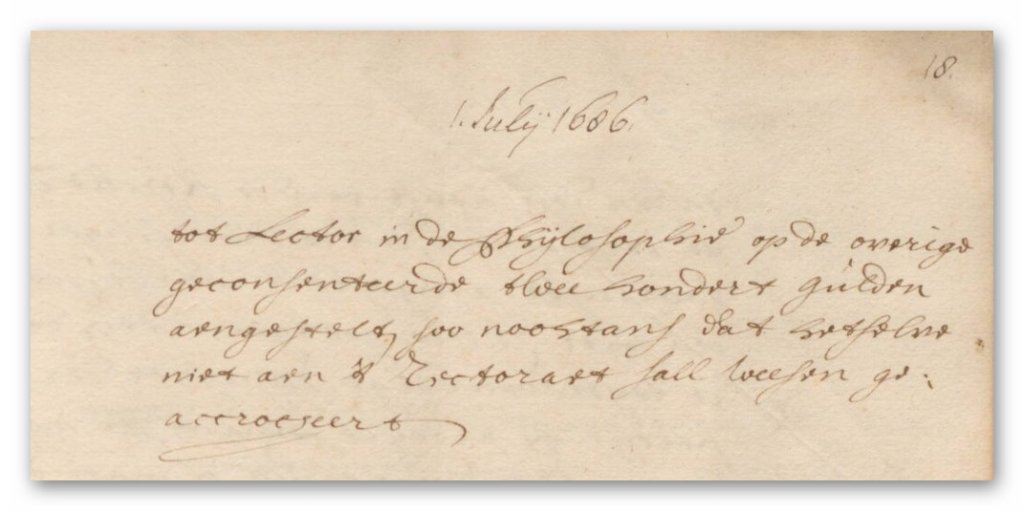 18.
1. Julÿ 1686.
tot Lector in de Phÿlosophie op de overige
geconsenteerde twee hondert gulden
aengestelt, soo nochtans dat hetselve
niet aen 't Rectoraet sall weesen ge:
accrocheert